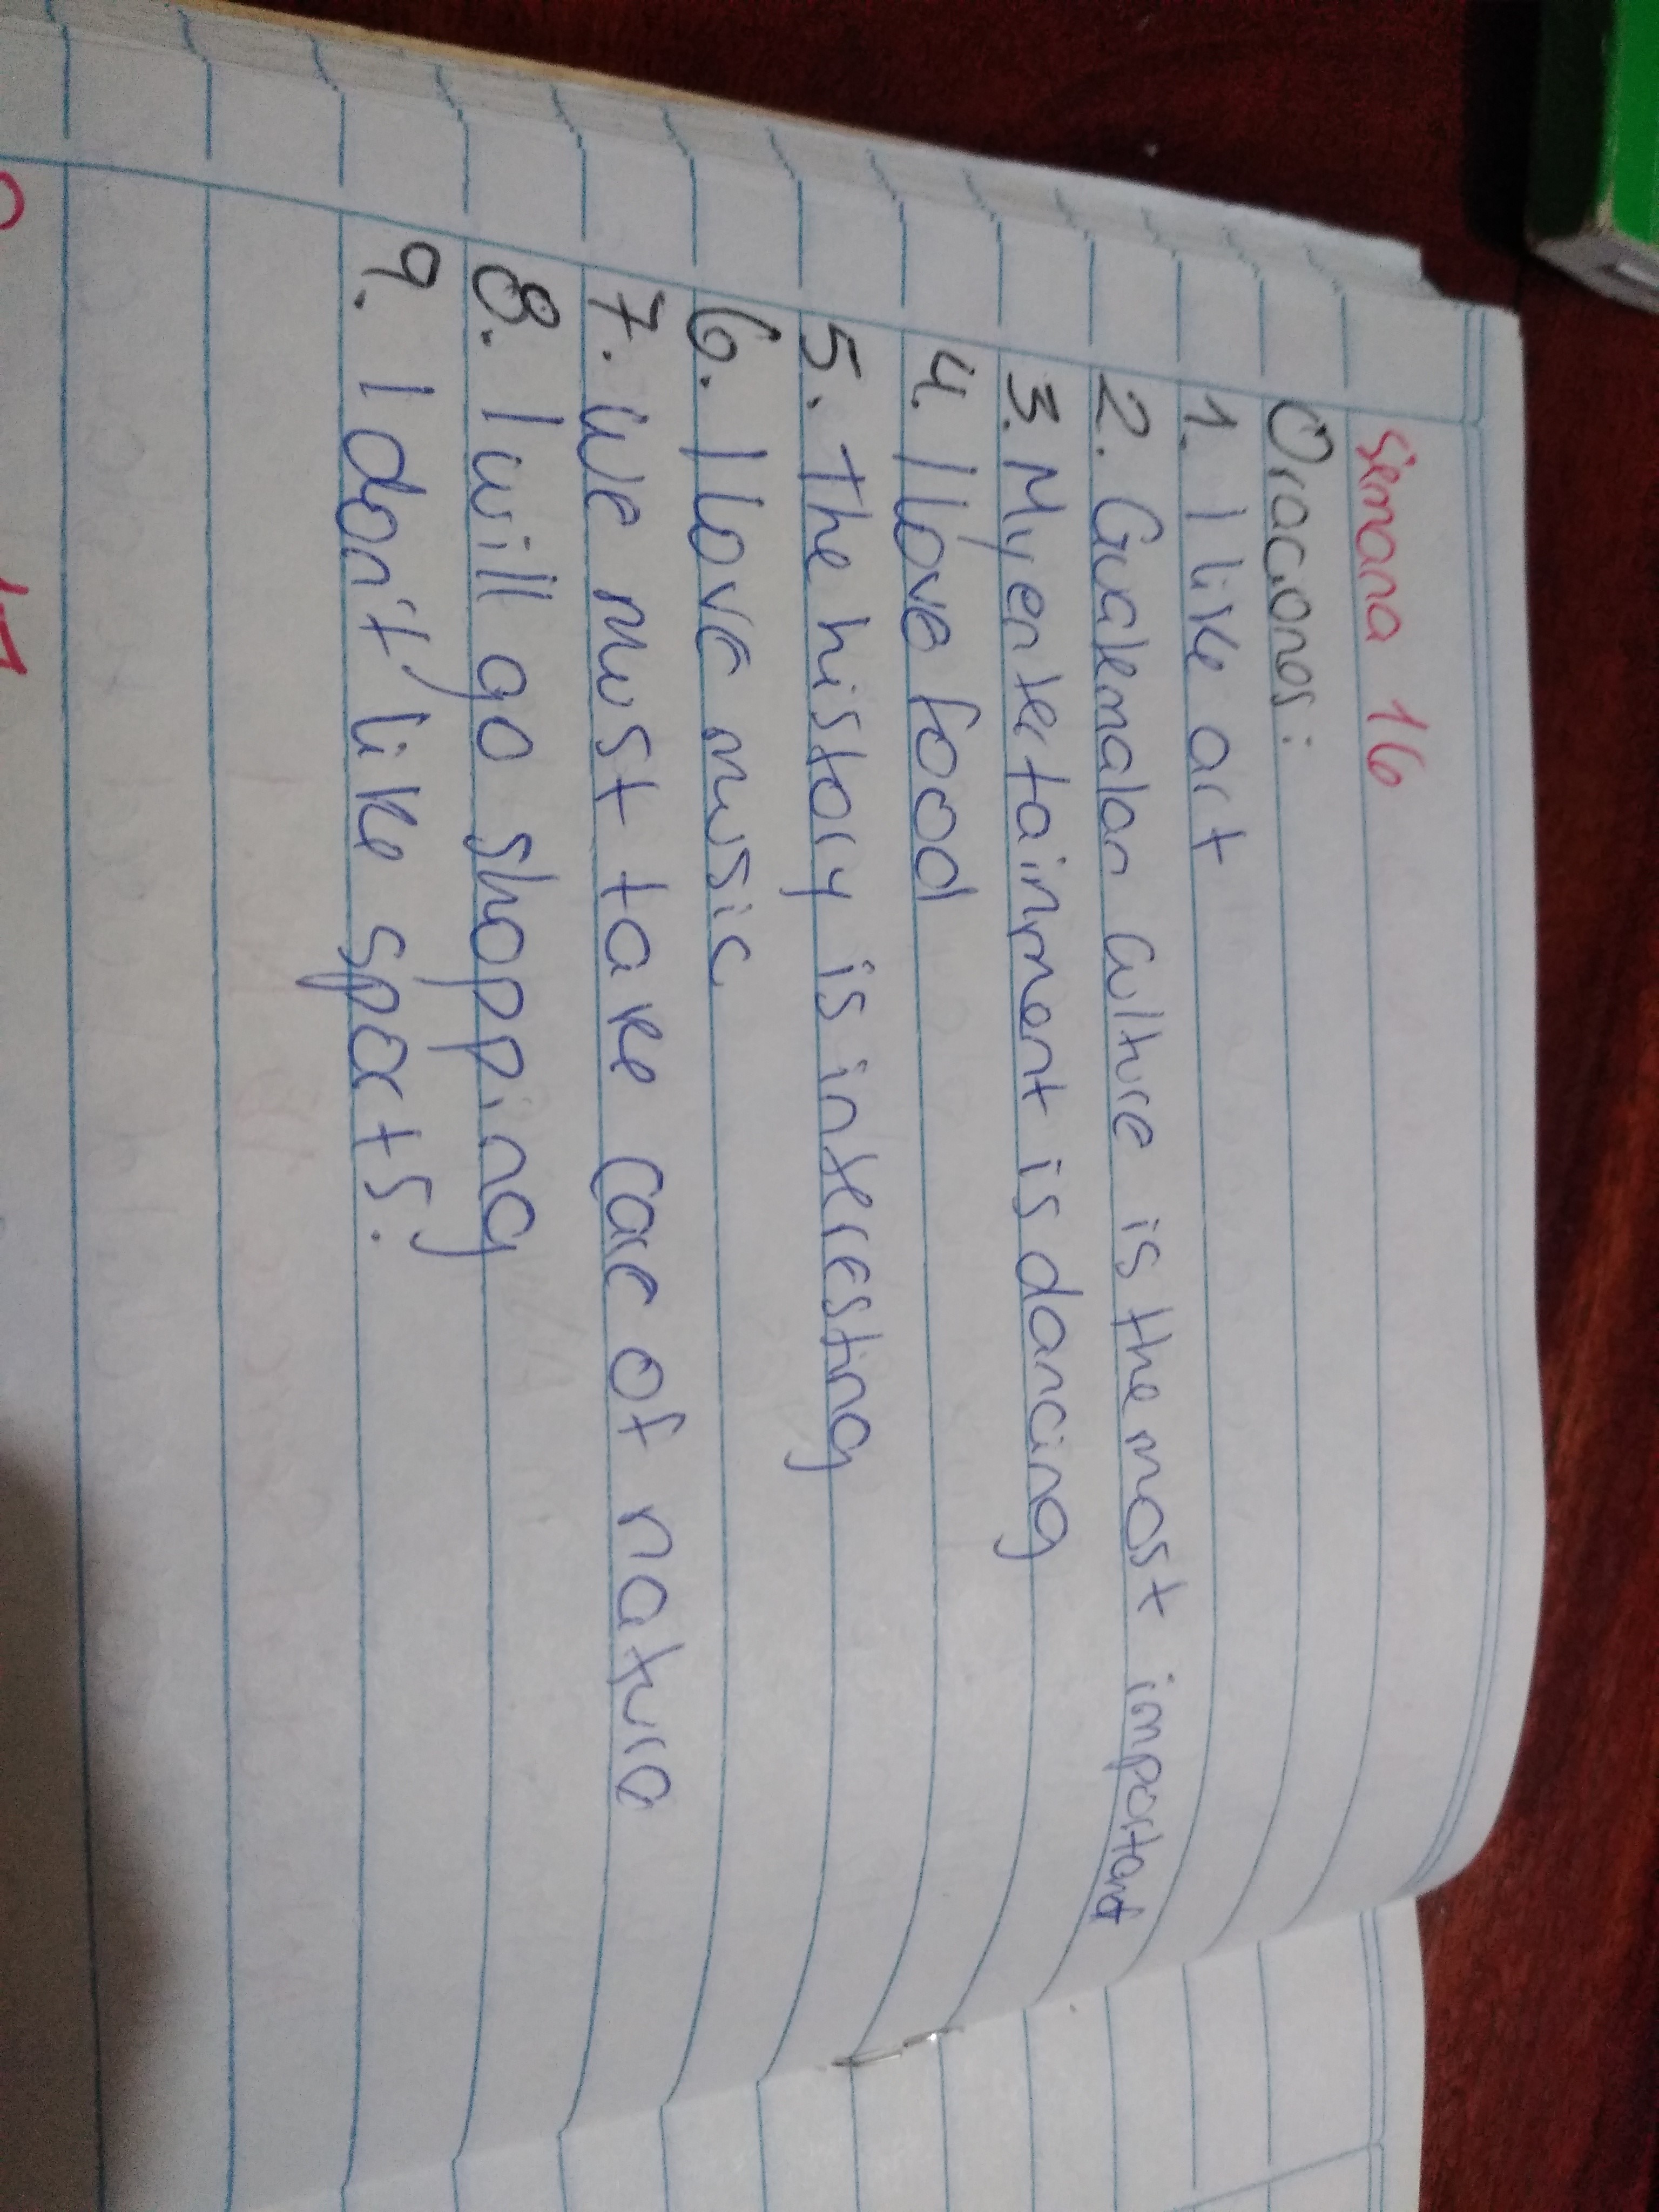 Semana 16
Oraciones:
1. I like art
2. Guatemalan culture is the most important
3. My entertainment is dancing
4. I love food
5. The history is interesting
6. I love music
7. We must take care of nature
8. I will go shopping
9. I don't like sports.